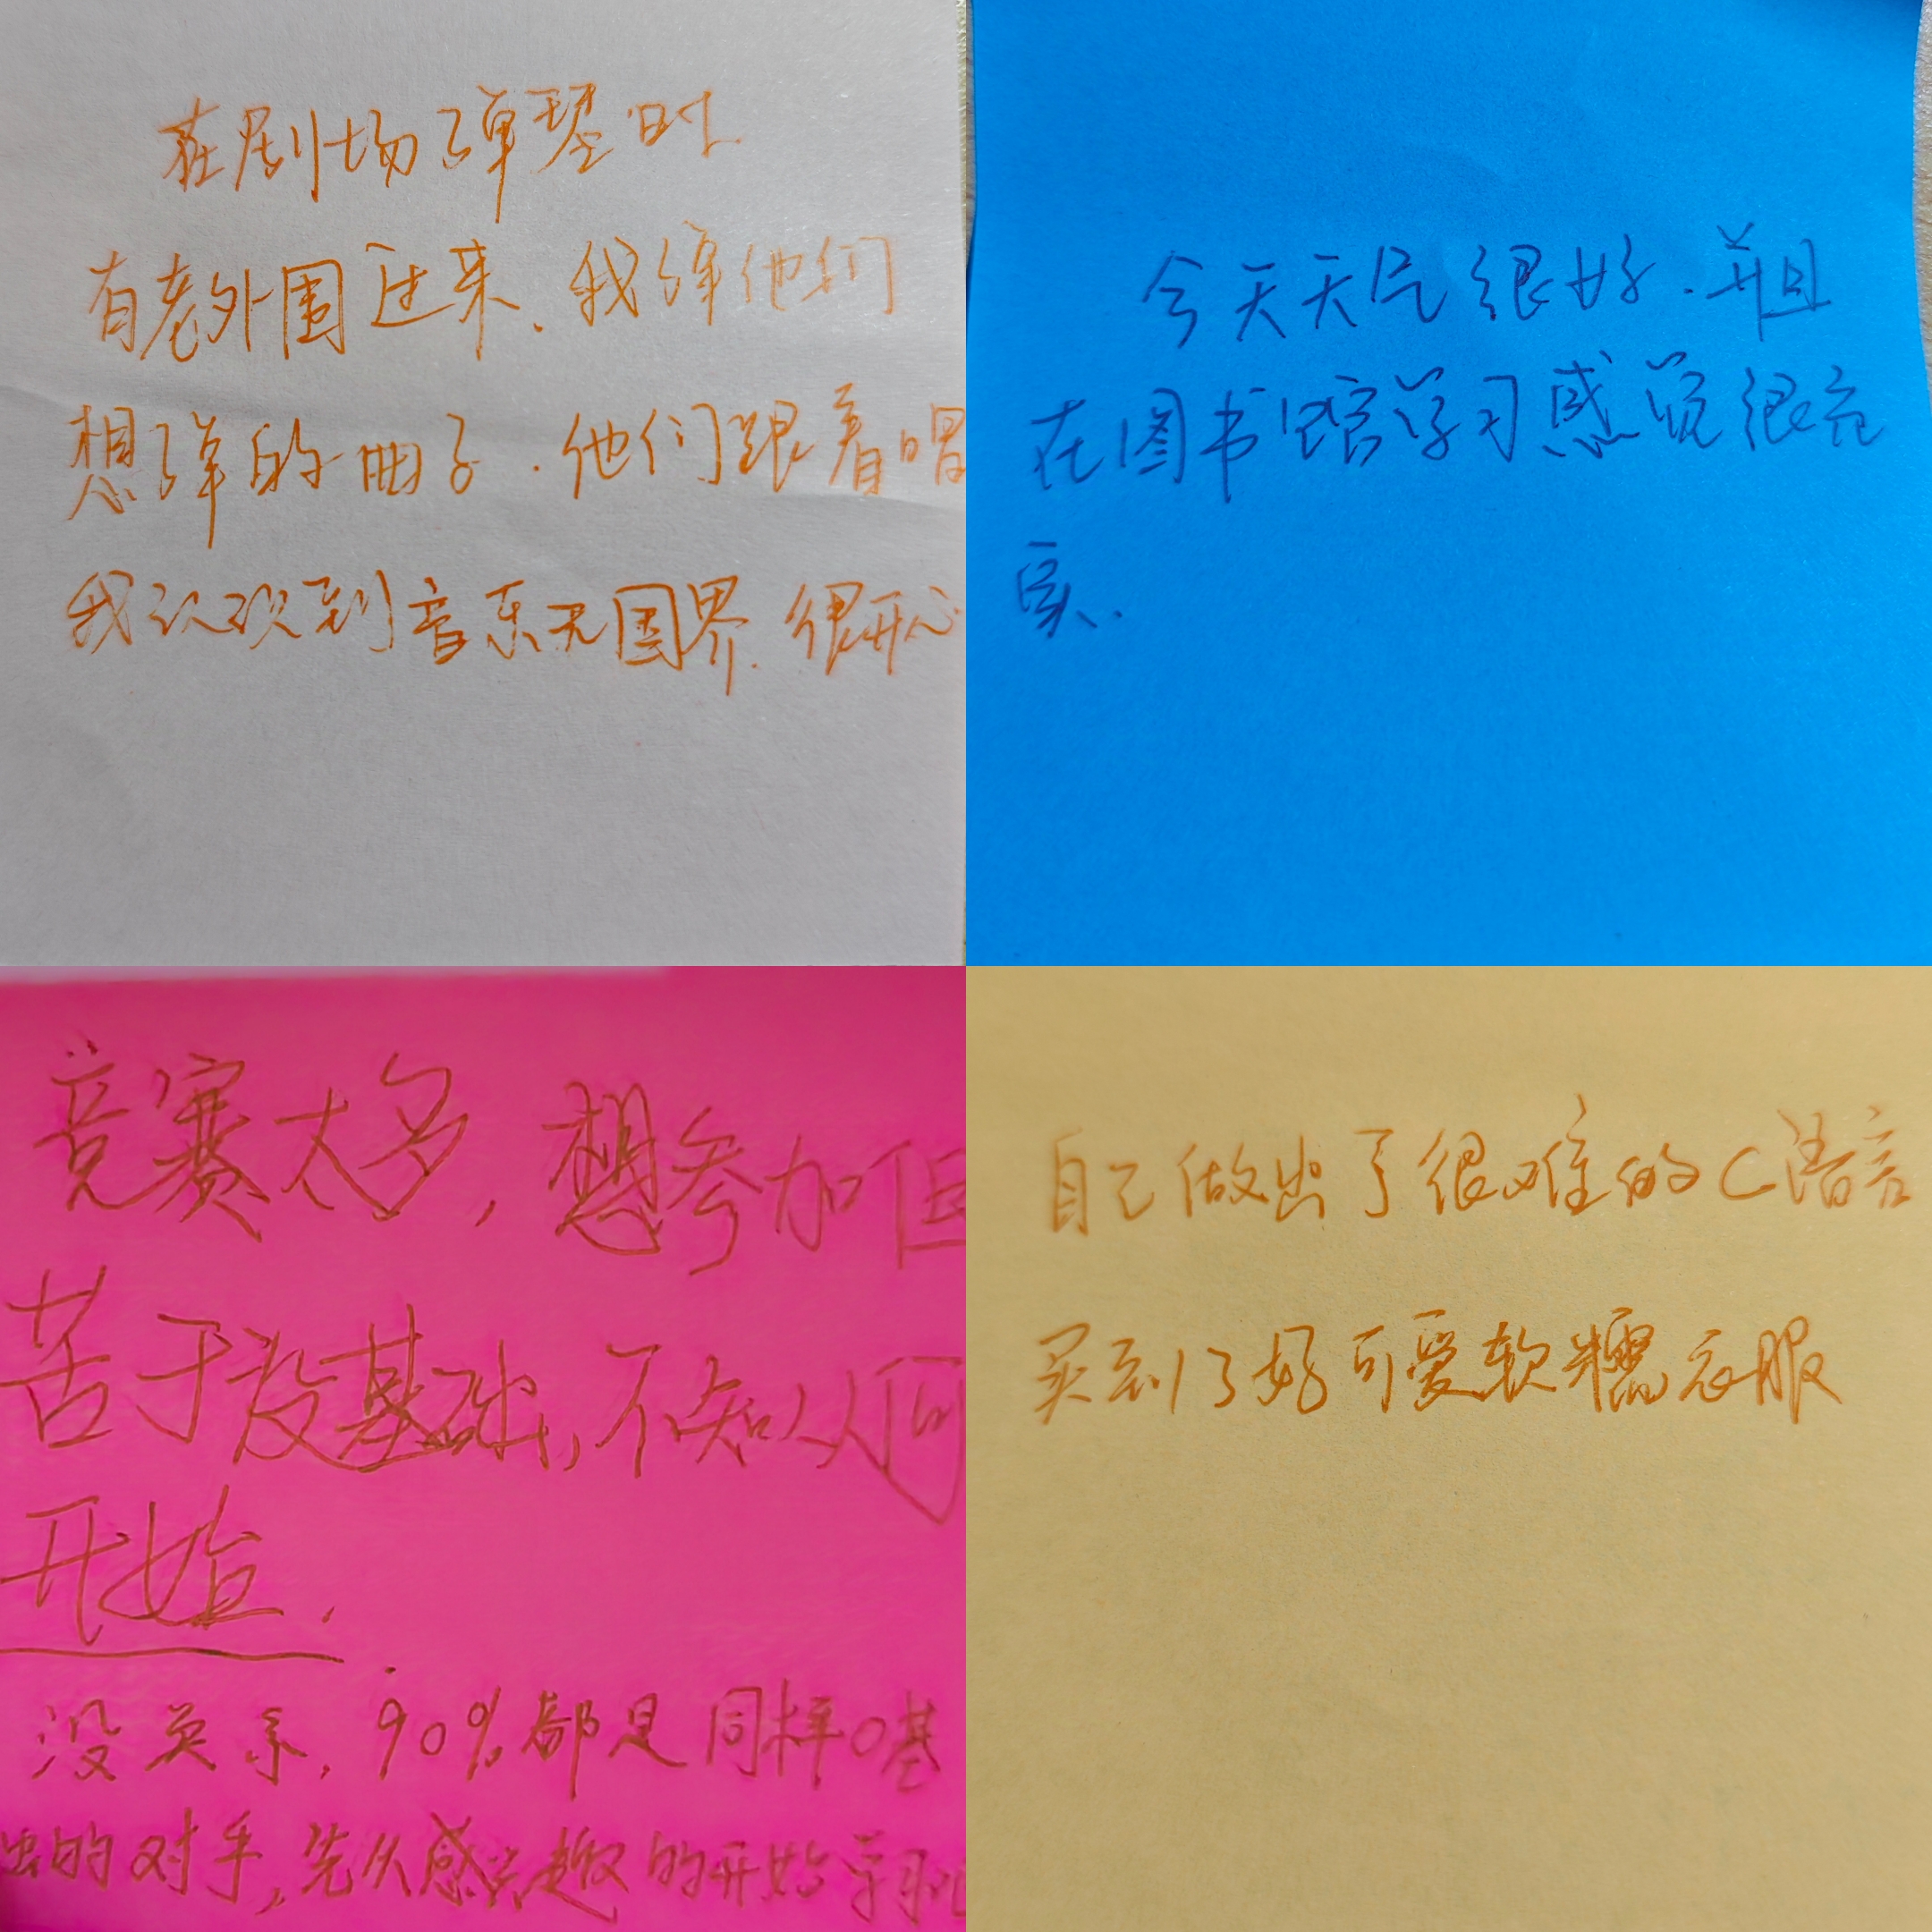 在剧场弹琴时
有老外围过来.我弹他们
想弹的曲子.他们跟着唱
我认识到音乐无国界.很开心
今天天气很好.并且
在图书馆学习感觉很充
实.
竞赛太多,想参加但
苦于没基础,不知从何
开始.
没关系,90%都是同样0基
础的对手,先从感兴趣的开始学
自己做出了很难的C语言
买到了好可爱软糯衣服